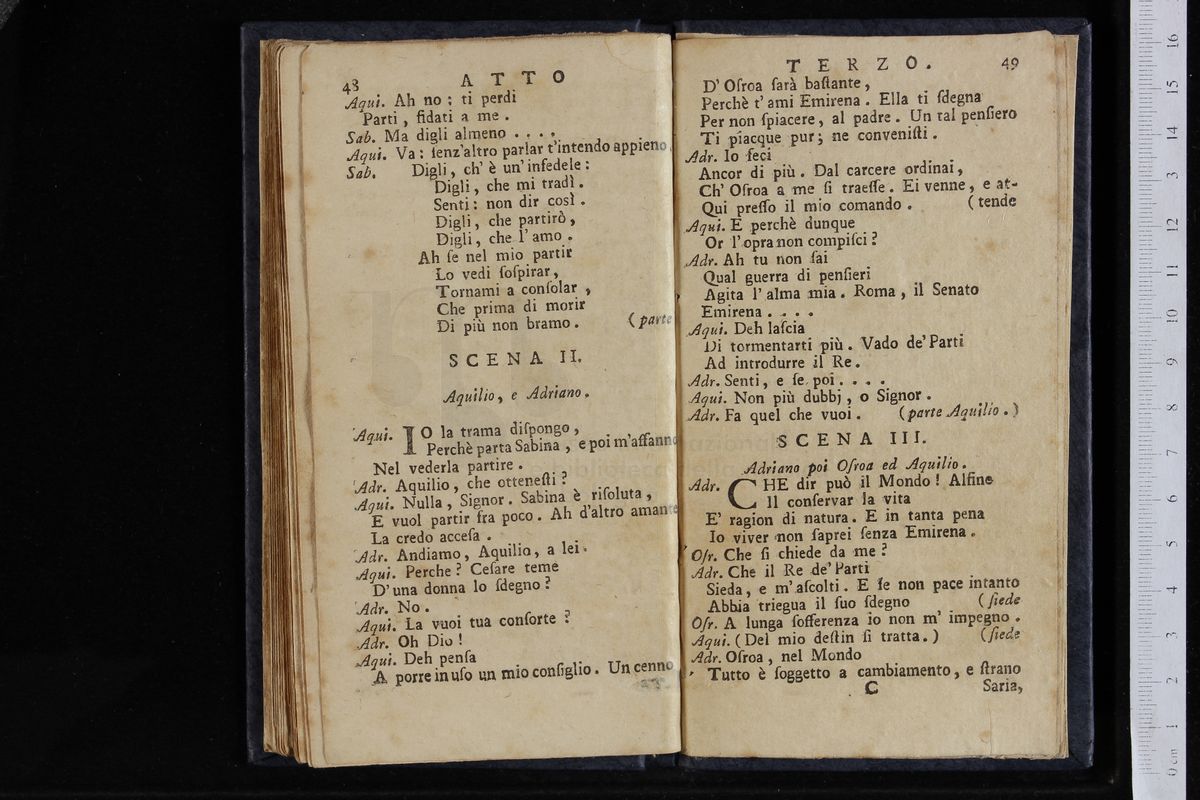 48 ATTO
Aqui. Ah no: ti perdi
Parti, fidati a me.
Sab. Ma digli almeno . . . .
Aqui. Va: ſenz'altro parlar t'intendo appieno.
Sab. Digli, ch' è un' infedele:
Digli, che mi tradì.
Senti: non dir così.
Digli, che partirò,
Digli, che l' amo.
Ah ſe nel mio partir
Lo vedi ſoſpirar,
Tornami a conſolar,
Che prima di morir
Di più non bramo. (parte
SCENA II.
Aquilio, e Adriano.
Aqui. IO la trama diſpongo,
Perchè parta Sabina, e poi m'affanno
Nel vederla partire.
Adr. Aquilio, che otteneſti?
Aqui. Nulla, Signor. Sabina è riſoluta,
E vuol partir fra poco. Ah d'altro amante
La credo acceſa.
Adr. Andiamo, Aquilio, a lei.
Aqui. Perche? Ceſare teme
D'una donna lo ſdegno?
Adr. No.
Aqui. La vuoi tua conſorte?
Adr. Oh Dio!
Aqui. Deh penſa
A porre in uſo un mio conſiglio. Un cenno
TERZO. 49
D' Oſroa ſarà baſtante,
Perchè t' ami Emirena. Ella ti ſdegna
Per non ſpiacere, al padre. Un tal penſiero
Ti piacque pur; ne conveniſti.
Adr. Io feci
Ancor di più. Dal carcere ordinai,
Ch' Oſroa a me ſi traeſſe. Ei venne, e at-
Qui preſſo il mio comando. (tende
Aqui. E perchè dunque
Or l'opra non compiſci?
Adr. Ah tu non ſai
Qual guerra di penſieri
Agita l' alma mia. Roma, il Senato
Emirena . . . .
Aqui. Deh laſcia
Di tormentarti più. Vado de' Parti
Ad introdurre il Re.
Adr. Senti, e ſe poi . . . .
Aqui. Non più dubbj, o Signor.
Adr. Fa quel che vuoi. (parte Aquilio.)
SCENA III.
Adriano poi Oſroa ed Aquilio.
Adr. CHE dir può il Mondo! Alfine
Il conſervar la vita
E' ragion di natura. E in tanta pena
Io viver non ſaprei ſenza Emirena.
Oſr. Che ſi chiede da me?
Adr. Che il Re de' Parti
Sieda, e m' aſcolti. E ſe non pace intanto
Abbia triegua il ſuo ſdegno (ſiede
Oſr. A lunga ſofferenza io non m' impegno.
Aqui. (Del mio deſtin ſi tratta.) (ſiede
Adr. Oſroa, nel Mondo
Tutto è ſoggetto a cambiamento, e ſtrano
C Saria,